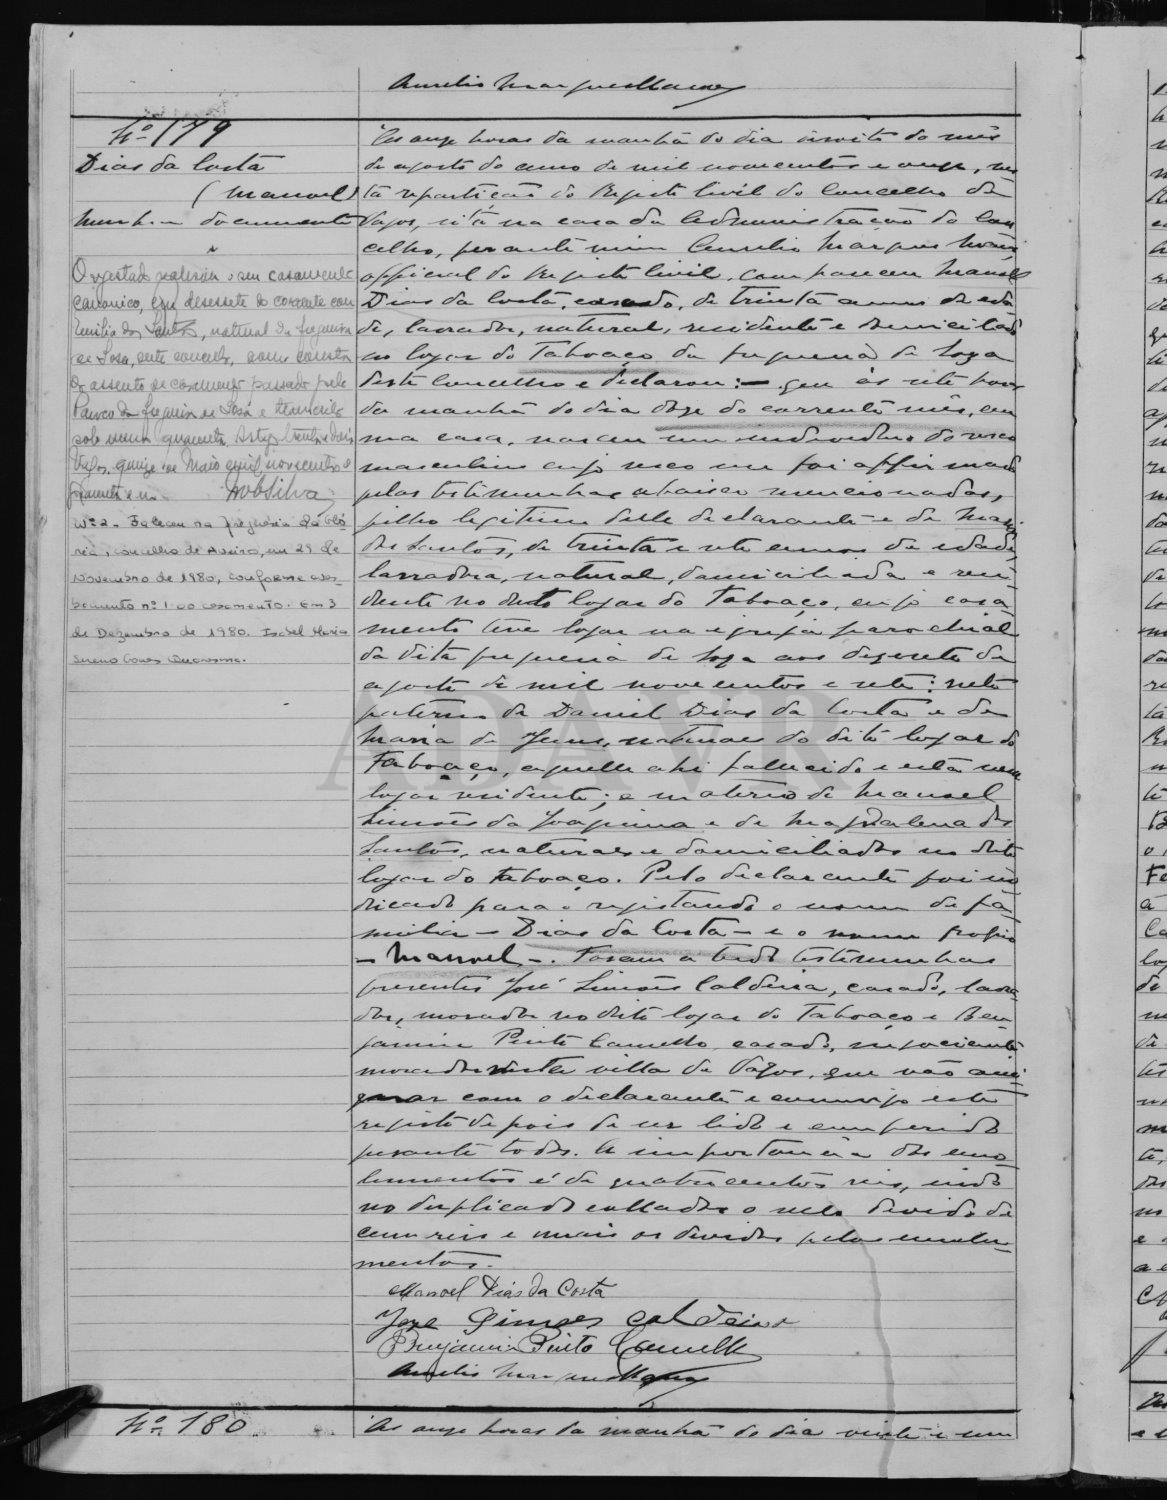 Aurelio Marques Mano
Nº 179
Dias da Costa
(Manoel)
Nenhum documento
O registado realizou o seu casamento
canonico, em desessete do corrente com
Emilia dos Santos, natural da freguesia
de Sosa, deste concelho, como consta
do assento de casamento passado pelo
Paroco da freguesia de Sosa e transcrito
sob numero quarenta.
Vagos, quinze de Maio de mil novecentos e
quarenta e um.
Nº 2 - Faleceu na freguesia da Gló-
ria, concelho de Aveiro, em 29 de
Novembro de 1980, conforme aver-
bamento nº 1 ao casamento. Em 3
de Dezembro de 1980. Isabel Maria
As onze horas da manhã do dia desoito do mês
de agosto do anno de mil novecentos e onze, nes
ta repartição do Registo Civil do Concelho de
Vagos, sita na casa da Administração do Con
celho, perante mim Aurelio Marques Mano,
official do registo civil, compareceu Manoel
Dias da Costa, casado, de trinta annos de eda
de, lavrador, natural, residente e domiciliado
no logar do Taboaço da freguesia de Soza
deste Concelho e declarou: - que ás sete horas
da manhã do dia doze do corrente mês, em
sua casa, nasceu um individuo do sexo
masculino cujo sexo me foi affirmado
pelas testimunhas abaixo mencionadas,
filho legitimo delle declarante e de Maria
dos Santos, de trinta e sete annos de edade,
lavradora, natural, domiciliada e resi-
dente no dito logar do Taboaço, cujo casa
mento teve logar na egreja parochial
da dita freguesia de Soza aos desesete de
agosto de mil novecentos e sete: neto
paterno de Daniel Dias da Costa e de
Maria de Jesus, naturaes do dito logar do
Taboaço, aquelle ahi fallecido e esta nesse
logar residente; e materno de Manoel
Simões da Joaquina e de Magdalena dos
Santos, naturaes e domiciliados no dito
logar do Taboaço. Pelo declarante foi in
dicado para o registando o nome de fa-
milia - Dias da Costa - e o nome proprio
- Manoel -. Foram a tudo testimunhas
presentes José Simões Caldeira, casado, lavra
dor, morador no dito logar do Taboaço e Ben
jamin Pinto Camello, casado, negociante
morador nesta villa de Vagos, que vão assi-
gnar com o declarante e commigo este
registo depois de ser lido e conferido
perante todos. A importancia dos emo
lumentos é de quatrocentos reis, indo
no duplicado collados o sello devido de
cem reis e mais os devidos pelos emolu-
mentos.
Manoel Dias da Costa
Joze Simoes Caldeira
Benjamin Pinto Camello
Aurelio Marques Mano
ADAVR
Nº 180
As onze horas da manhã do dia vinte e um